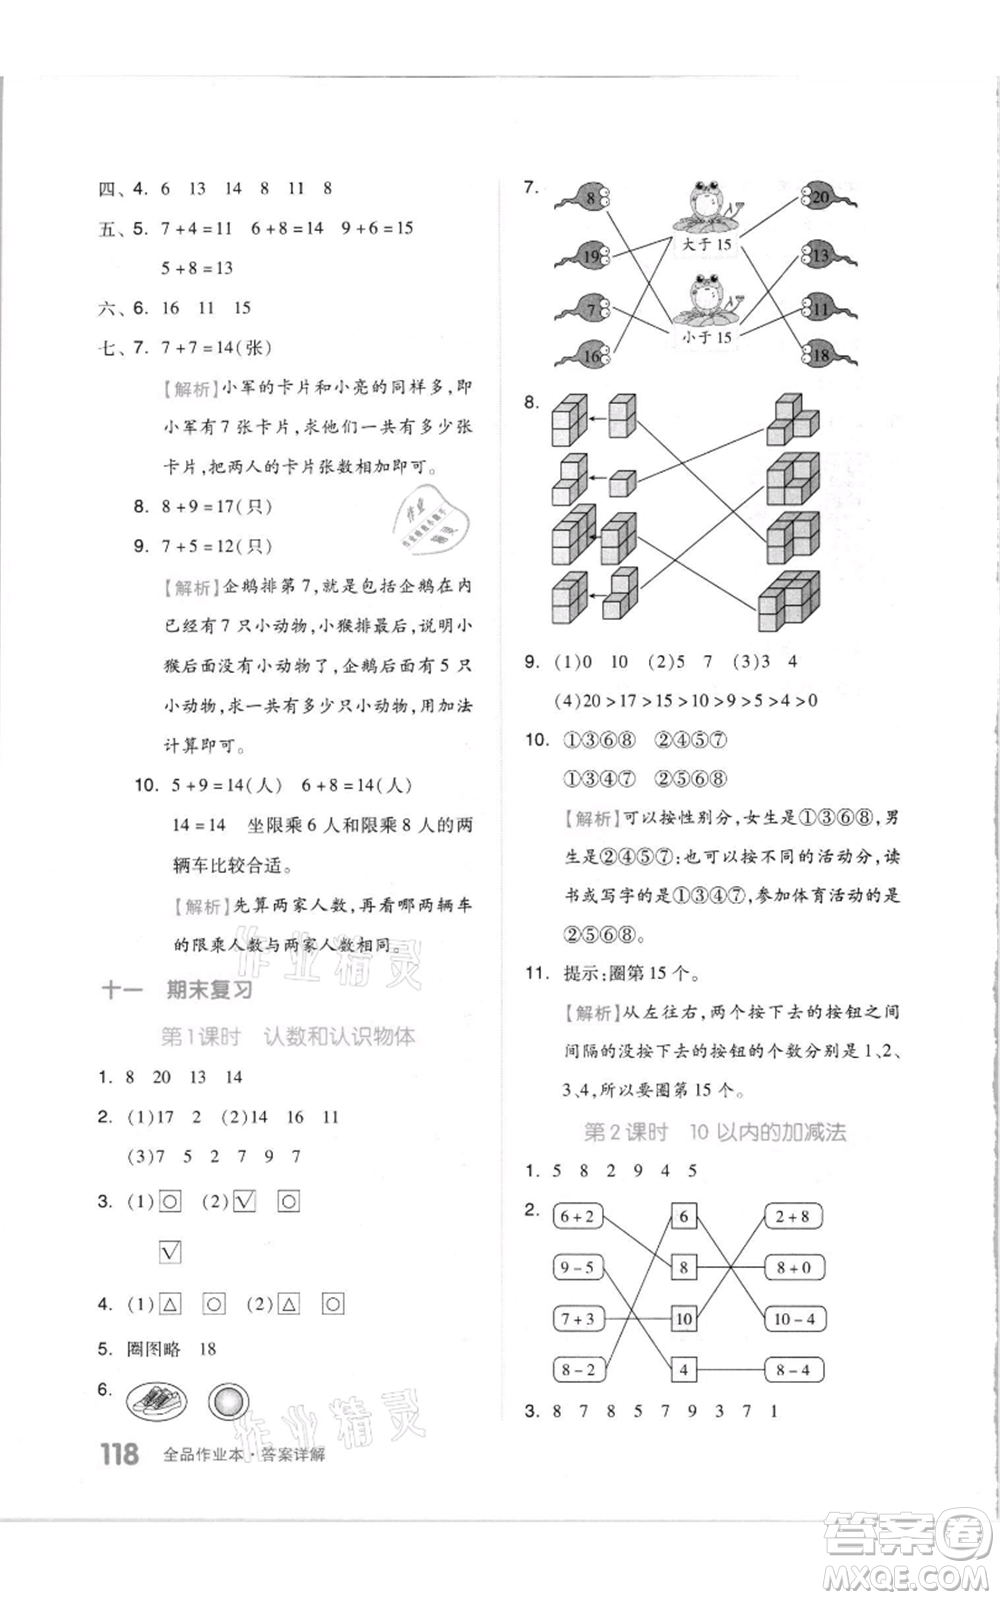 四、4. 6 13 14 8 11 8
五、5. 7+4=11 6+8=14 9+6=15
5+8=13
六、6. 16 11 15
七、7. 7+7=14(张)
【解析】小军的卡片和小亮的同样多,即
小军有7张卡片,求他们一共有多少张
卡片,把两人的卡片张数相加即可。
8. 8+9=17(只)
9. 7+5=12(只)
【解析】企鹅排第7,就是包括企鹅在内
已经有7只小动物,小猴排最后,说明小
猴后面没有小动物了,企鹅后面有5只
小动物,求一共有多少只小动物,用加法
计算即可。
10. 5+9=14(人) 6+8=14(人)
14=14 坐限乘6人和限乘8人的两
辆车比较合适。
【解析】先算两家人数,再看哪两辆车
的限乘人数与两家人数相同。
十一 期末复习
第1课时 认数和认识物体
1. 8 20 13 14
2. (1)17 2 (2)14 16 11
(3)7 5 2 7 9 7
3. (1)○ (2)√ ○
√
4. (1)△ ○ (2)△ ○
5. 圈图略 18
6.
118 全品作业本·答案详解
7. 8 20
大于15
19 13
7 11
小于15
16 18
8.
9. (1)0 10 (2)5 7 (3)3 4
(4)20>17>15>10>9>5>4>0
10. ①③⑥⑧ ②④⑤⑦
①③④⑦ ②⑤⑥⑧
【解析】可以按性别分,女生是①③⑥⑧,男
生是②④⑤⑦;也可以按不同的活动分,读
书或写字的是①③④⑦,参加体育活动的是
②⑤⑥⑧。
11. 提示:圈第15个。
【解析】从左往右,两个按下去的按钮之间
间隔的没按下去的按钮的个数分别是1、2、
3、4,所以要圈第15个。
第2课时 10以内的加减法
1. 5 8 2 9 4 5
2. 6+2 6 2+8
9-5 8 8+0
7+3 10 10-4
8-2 4 8-4
3. 8 7 8 5 7 9 3 7 1
作业精灵
作业精灵
答案圈
MXQE.COM